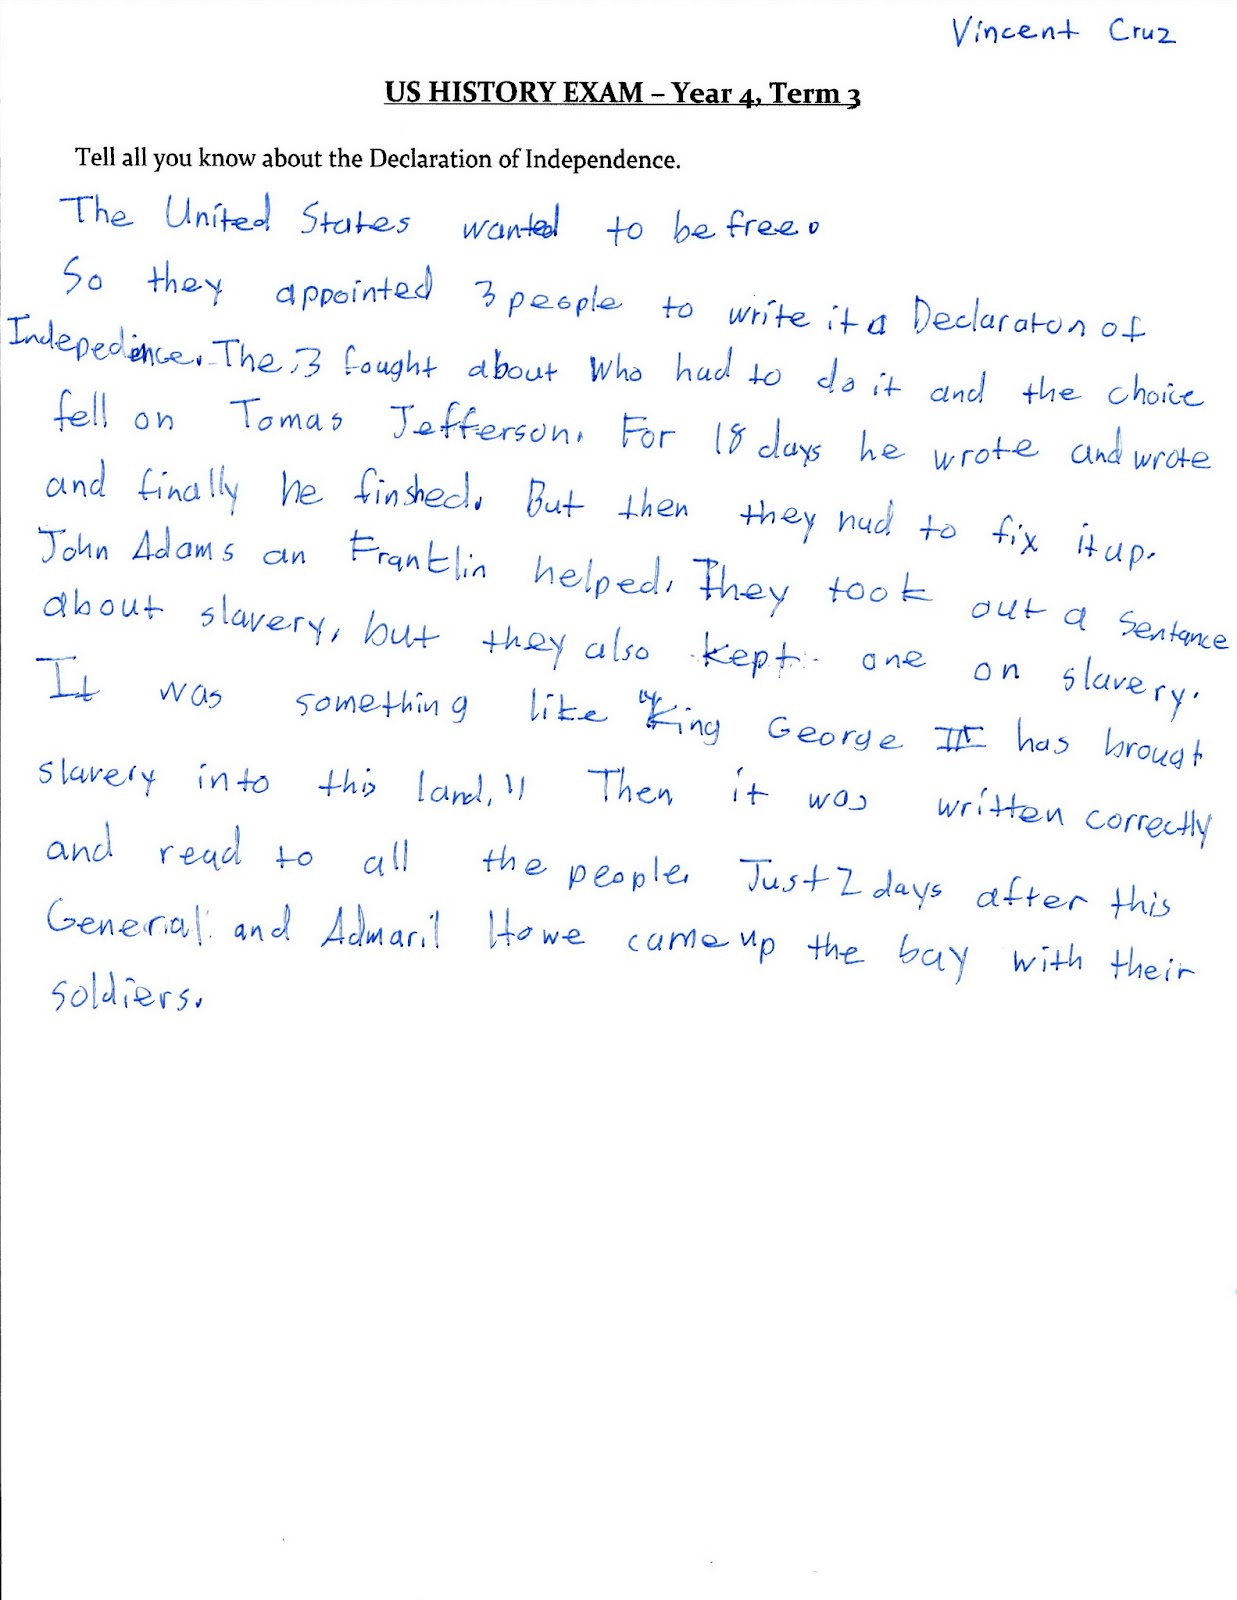 Vincent Cruz
US HISTORY EXAM – Year 4, Term 3
Tell all you know about the Declaration of Independence.
The United States wanted to be free.
So they appointed 3 people to write it a Declaraton of
Indepedince. The 3 fought about who had to do it and the choice
fell on Tomas Jefferson. For 18 days he wrote and wrote
and finally he finshed. But then they had to fix it up.
John Adams an Franklin helped. They took out a sentance
about slavery, but they also kept one on slavery.
It was something like "King George III has brougt
slavery into this land." Then it was written correctly
and read to all the people. Just 2 days after this
General and Admaril Howe came up the bay with their
soldiers.